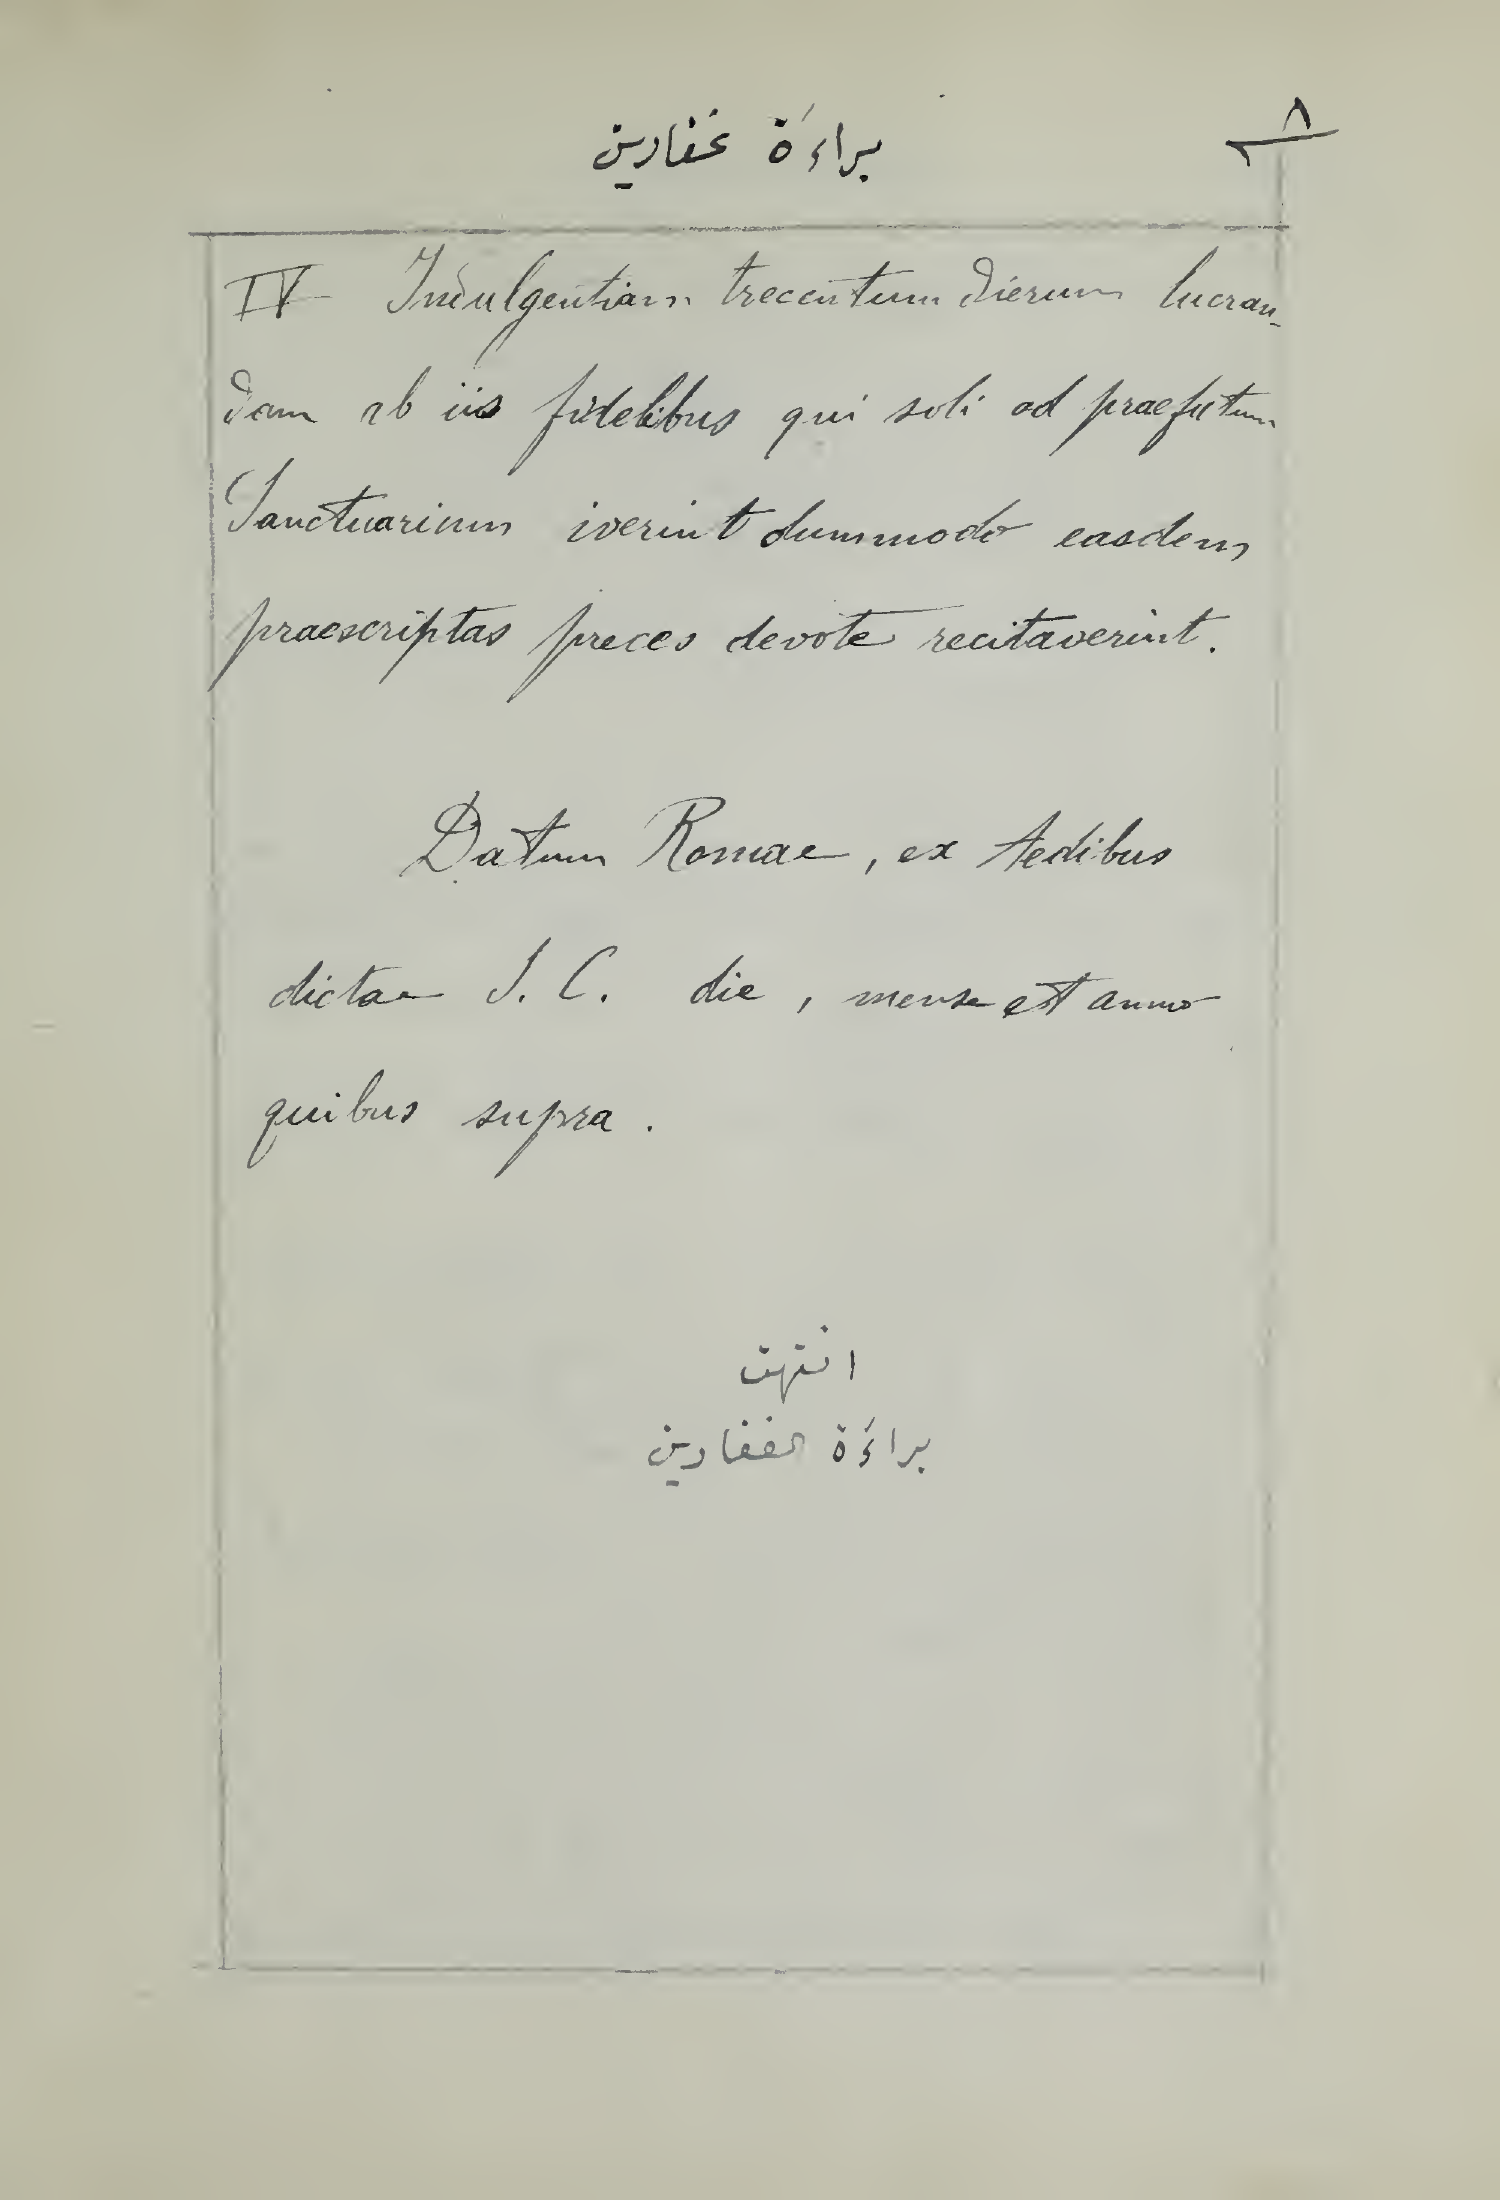 ٨
براءَة غفارين
IV Indulgentiam trecentum dierum lucran-
dam ab iis fidelibus qui soli ad praefatum
Sanctuarium iverint dummodo easdem
praescriptas preces devote recitaverint.
Datum Romae, ex Aedibus
dictae S. C. die, mense et anno
quibus supra.
انتهت
براءَة الغفارين